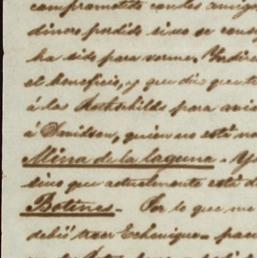 comprometido con los amigos
dinero perdido si no se consi
ha sido para vernos. Yndire
el beneficio, y que dio que t
á los Rothschilds para avi
á Davidson, quien no está n
Mina de la laguna. Y
sino que actualmente está d
Botines. Por lo que me
debió traer Echenique